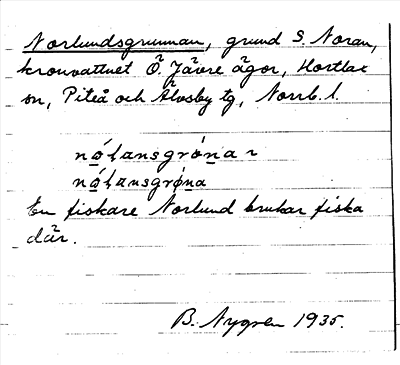 Norlundsgrunnan, grund S. Noran,
kronvattnet Ö. Jävre ägor, Hortlax
sn, Piteå och Älvsby tg, Norrb. l.
nó̲lansgrónar
nó̲lansgróna
En fiskare Norlund brukar fiska
där.
B. Nygren 1935.